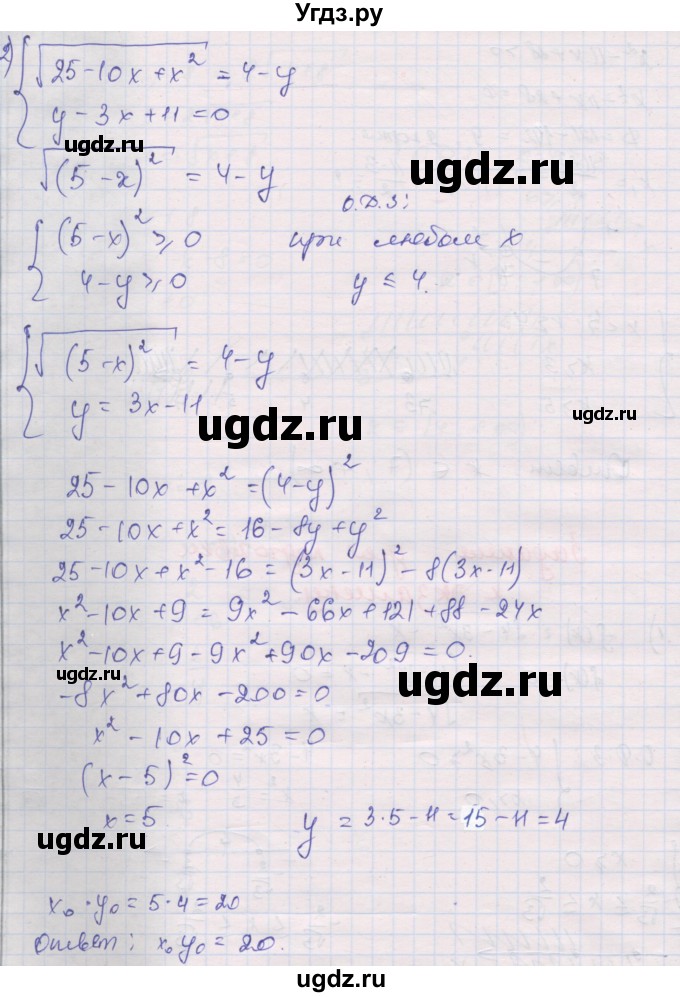 Угдз.ру
2) { √(25-10x+x²) = 4-y
y-3x+11=0
ugdz.ru
√((5-x)²) = 4-y
ugdz.ru
О.Д.З:
{ (5-x)² ≥ 0 при любом x
4-y ≥ 0 y ≤ 4.
{ √((5-x)²) = 4-y
y = 3x-11
ugdz.ru
ugdz.ru
25-10x+x² = (4-y)²
25-10x+x² = 16-8y+y²
ugdz.ru
25-10x+x²-16 = (3x-11)²-8(3x-11)
x²-10x+9 = 9x²-66x+121+88-24x
x²-10x+9-9x²+90x-209=0.
ugdz.ru
ugdz.ru
-8x²+80x-200=0
x²-10x+25=0
(x-5)²=0
x=5 y = 3·5-11=15-11=4
ugdz.ru
ugdz.ru
x₀·y₀=5·4=20
Ответ: x₀y₀=20.
ugdz.ru
ugdz.ru